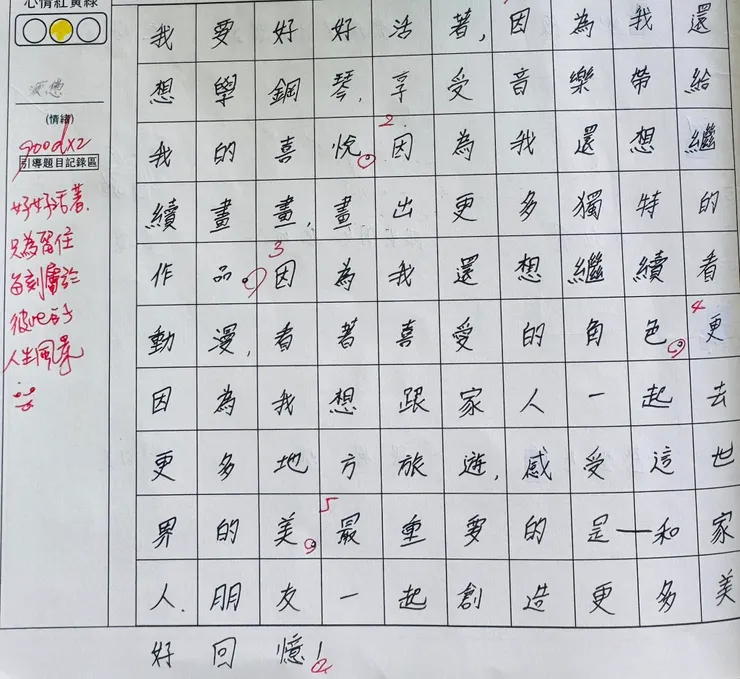 心情紅黃綠
(情緒)
goodx2
引導題目記錄區
好好活著,
只為留住
每刻屬於
彼此的
人生風景
我要好好活著,因為我還
想學鋼琴,享受音樂帶給
2.
我的喜悅。因為我還想繼
續畫畫,畫出更多獨特的
3
作品。因為我還想繼續看
4
動漫,看著喜愛的角色。更
因為我想跟家人一起去
更多地方旅遊,感受這世
5
界的美。最重要的是—和家
人.朋友一起創造更多美
好回憶!